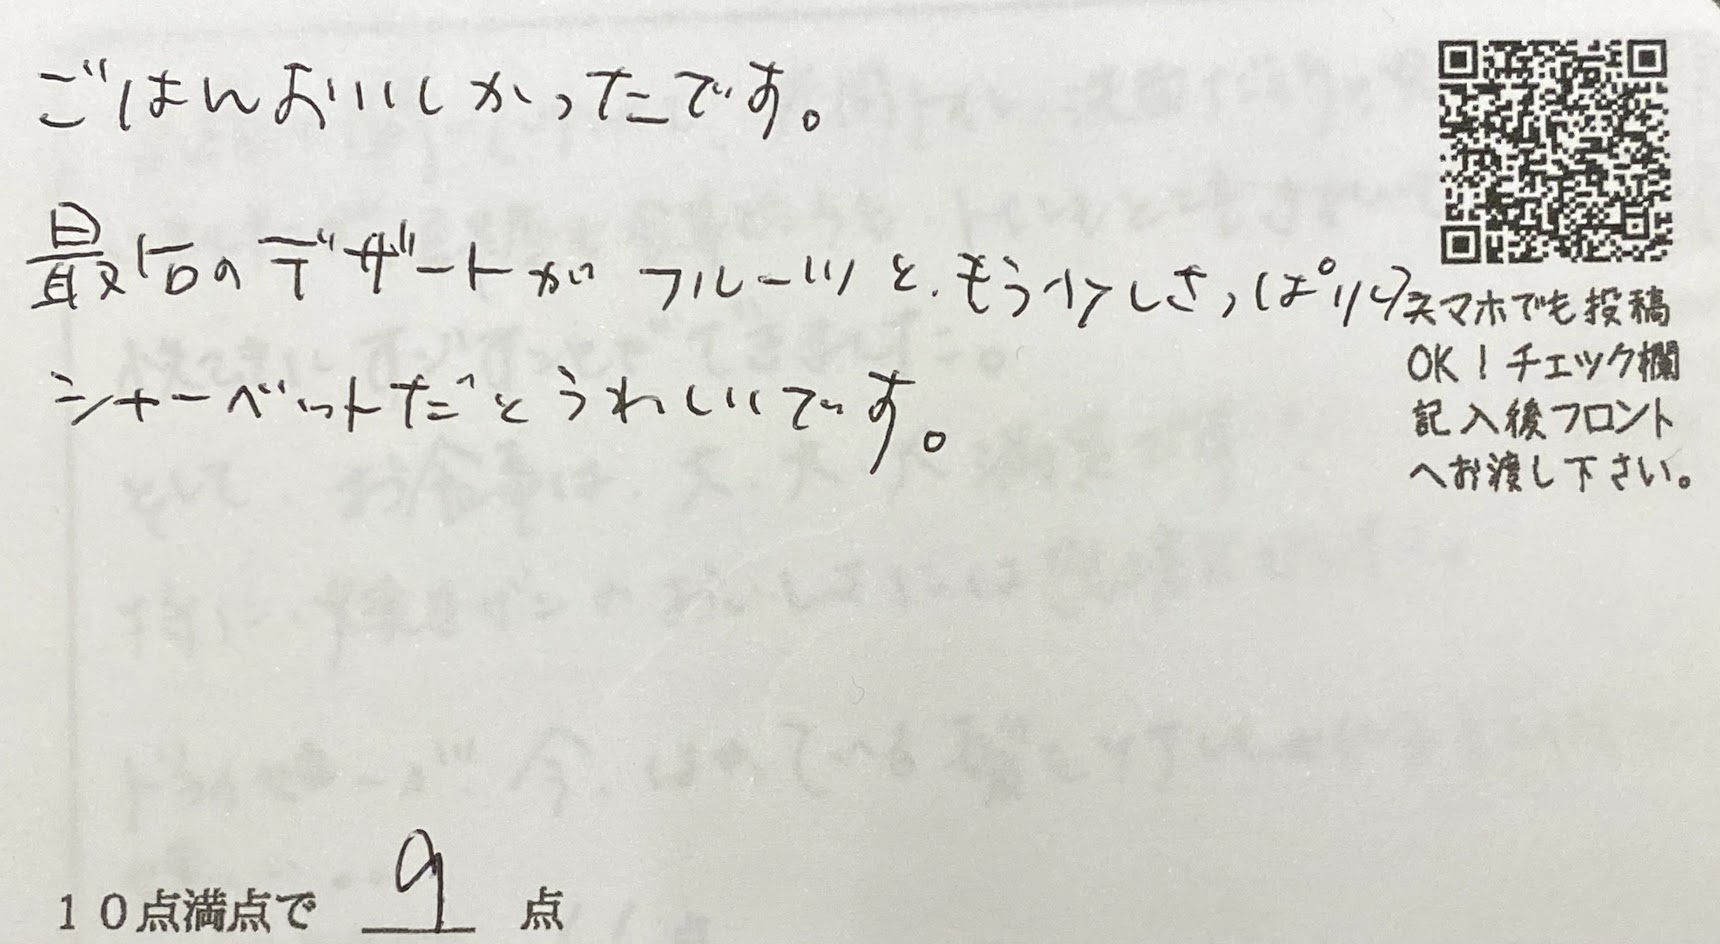 ごはんおいしかったです。
最后のデザートがフルーツと、もう少しさっぱりの
シャーベットだとうれしいです。
スマホでも投稿
OK！チェック欄
記入後フロント
へお渡し下さい。
10点満点で 9 点